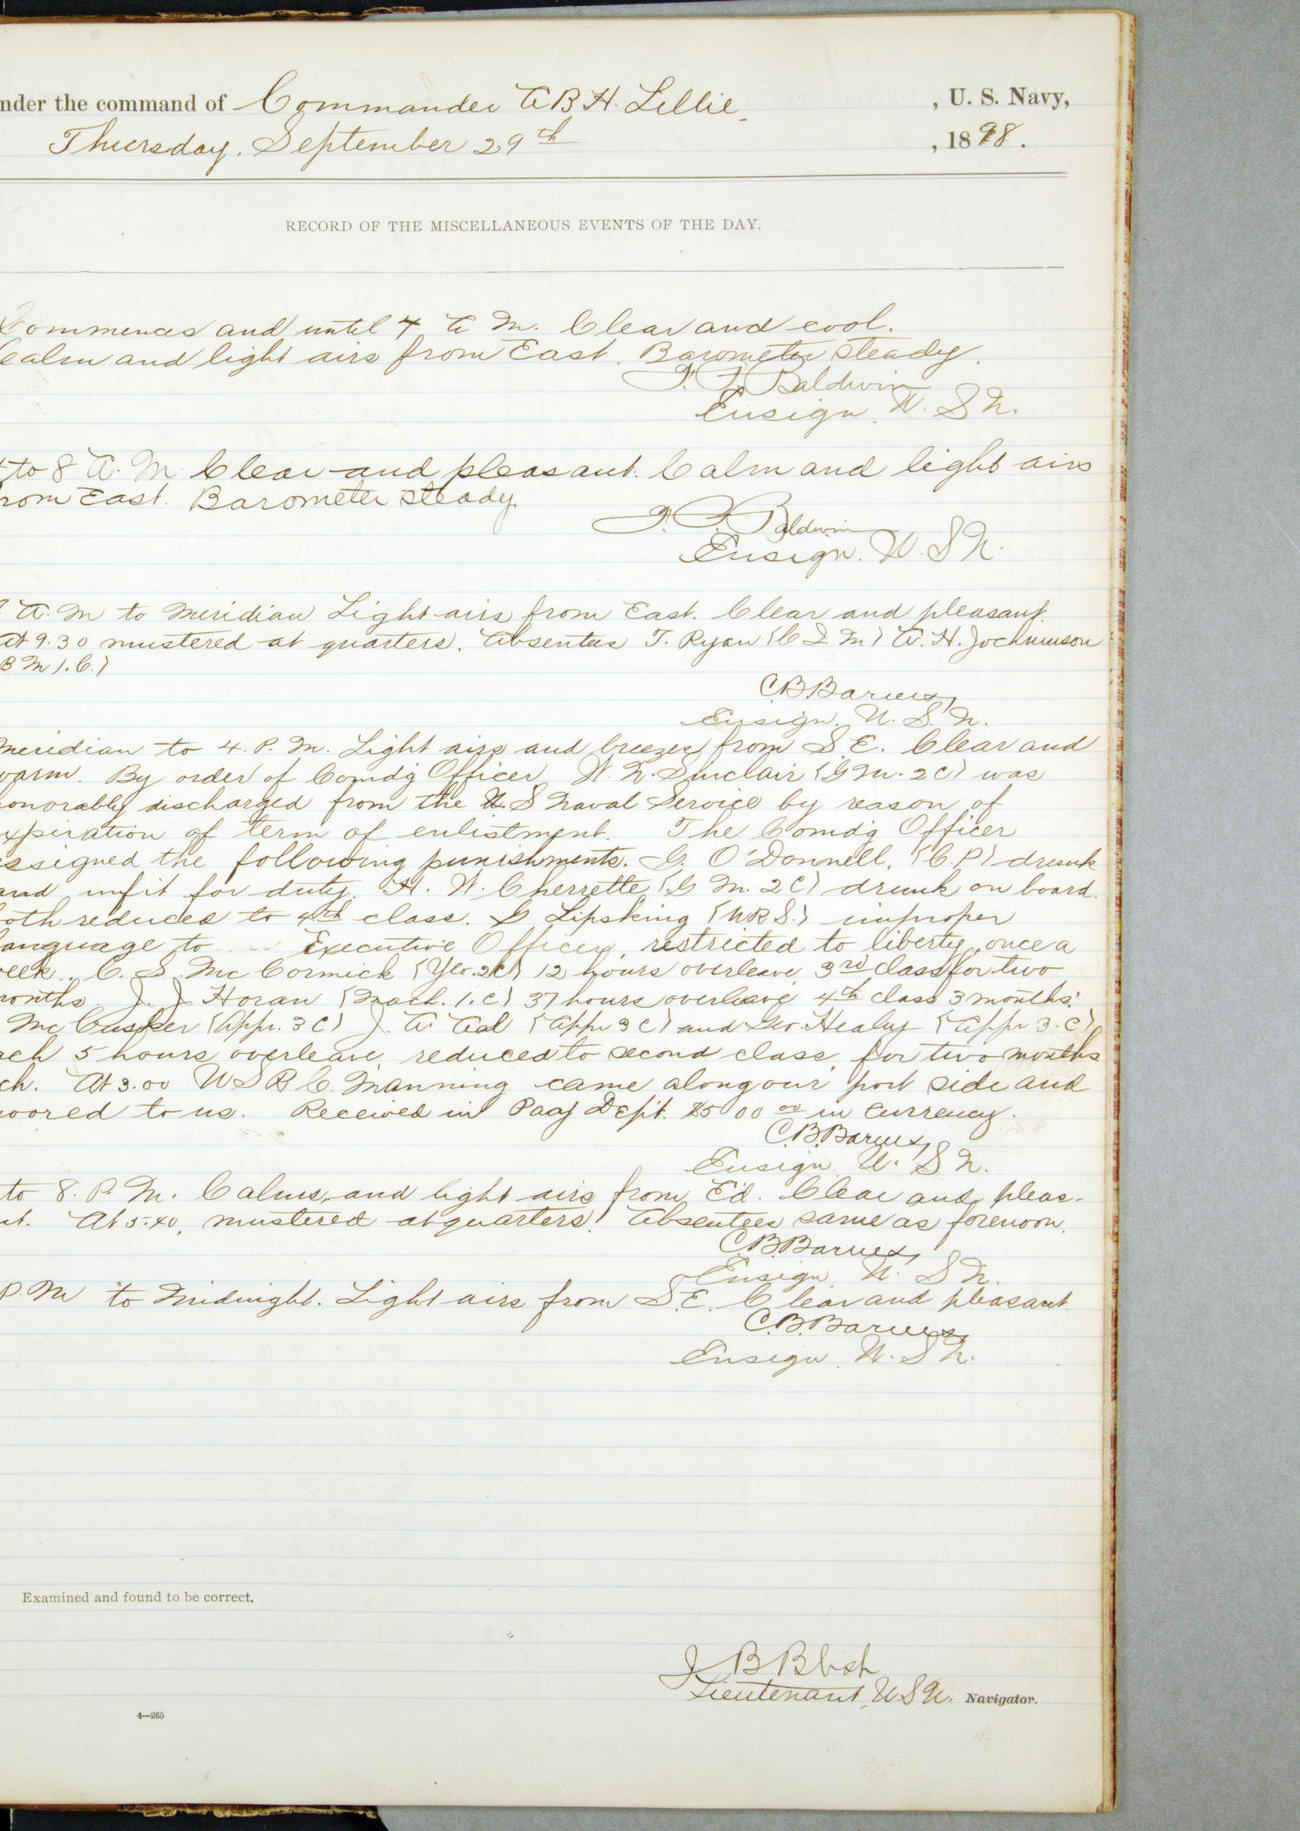 nder the command of Commander A B H. Lillie , U. S. Navy,
Thursday, September 29th , 1898.
RECORD OF THE MISCELLANEOUS EVENTS OF THE DAY.
Commences and until 4 A M. Clear and cool.
Calm and light airs from East. Barometer steady.
F. P. Baldwin
Ensign. U. S N.
to 8 A. M. Clear and pleasant. Calm and light airs
rom East. Barometer steady.
F. P. Baldwin
Ensign. U. S N.
A. M to Meridian Light airs from East. Clear and pleasant.
At 9.30 mustered at quarters. Absentees T. Ryan (C G M) A. H. Jochumson
B M 1. C.)
C. B. Barnes,
Ensign. U. S. N.
Meridian to 4. P. M. Light airs and breezes from S. E. Clear and
warm. By order of Comdg Officer W. N. Sinclair (G M. 2 C) was
honorably discharged from the U. S Naval Service by reason of
expiration of term of enlistment. The Comdg Officer
assigned the following punishments. G. O'Donnell, (C. P) drunk
and unfit for duty. H. W. Cherrette (G M. 2 C) drunk on board.
both reduced to 4th class. G Lipsking (W R S.) improper
language to Executive Officer, restricted to liberty once a
week. C. S. McCormick (Yeo. 2 C) 12 hours overleave, 3rd class for two
months. J. J. Horan (Mach. 1. C) 37 hours overleave 4th class 3 months.
McCusker (App. 3 C) J. A. (App 3 C) and Geo. Healy (App 3. C)
ach 5 hours overleave, reduced to second class, for two months
ch. At 3.00 U S R C. Manning came along our port side and
moored to us. Received in Pay Dept. $5000 00 in currency.
C. B. Barnes,
Ensign U. S N.
to 8. P. M. Calms, and light airs from E'd. Clear and pleas-
nt. At 5.40, mustered at quarters. Absentees same as forenoon.
C. B. Barnes,
Ensign U. S N.
P M to Midnight. Light airs from S. E. Clear and pleasant.
C. B. Barnes,
Ensign U. S N.
Examined and found to be correct.
J B Blish
Lieutenant, U S N. Navigator.
4—265